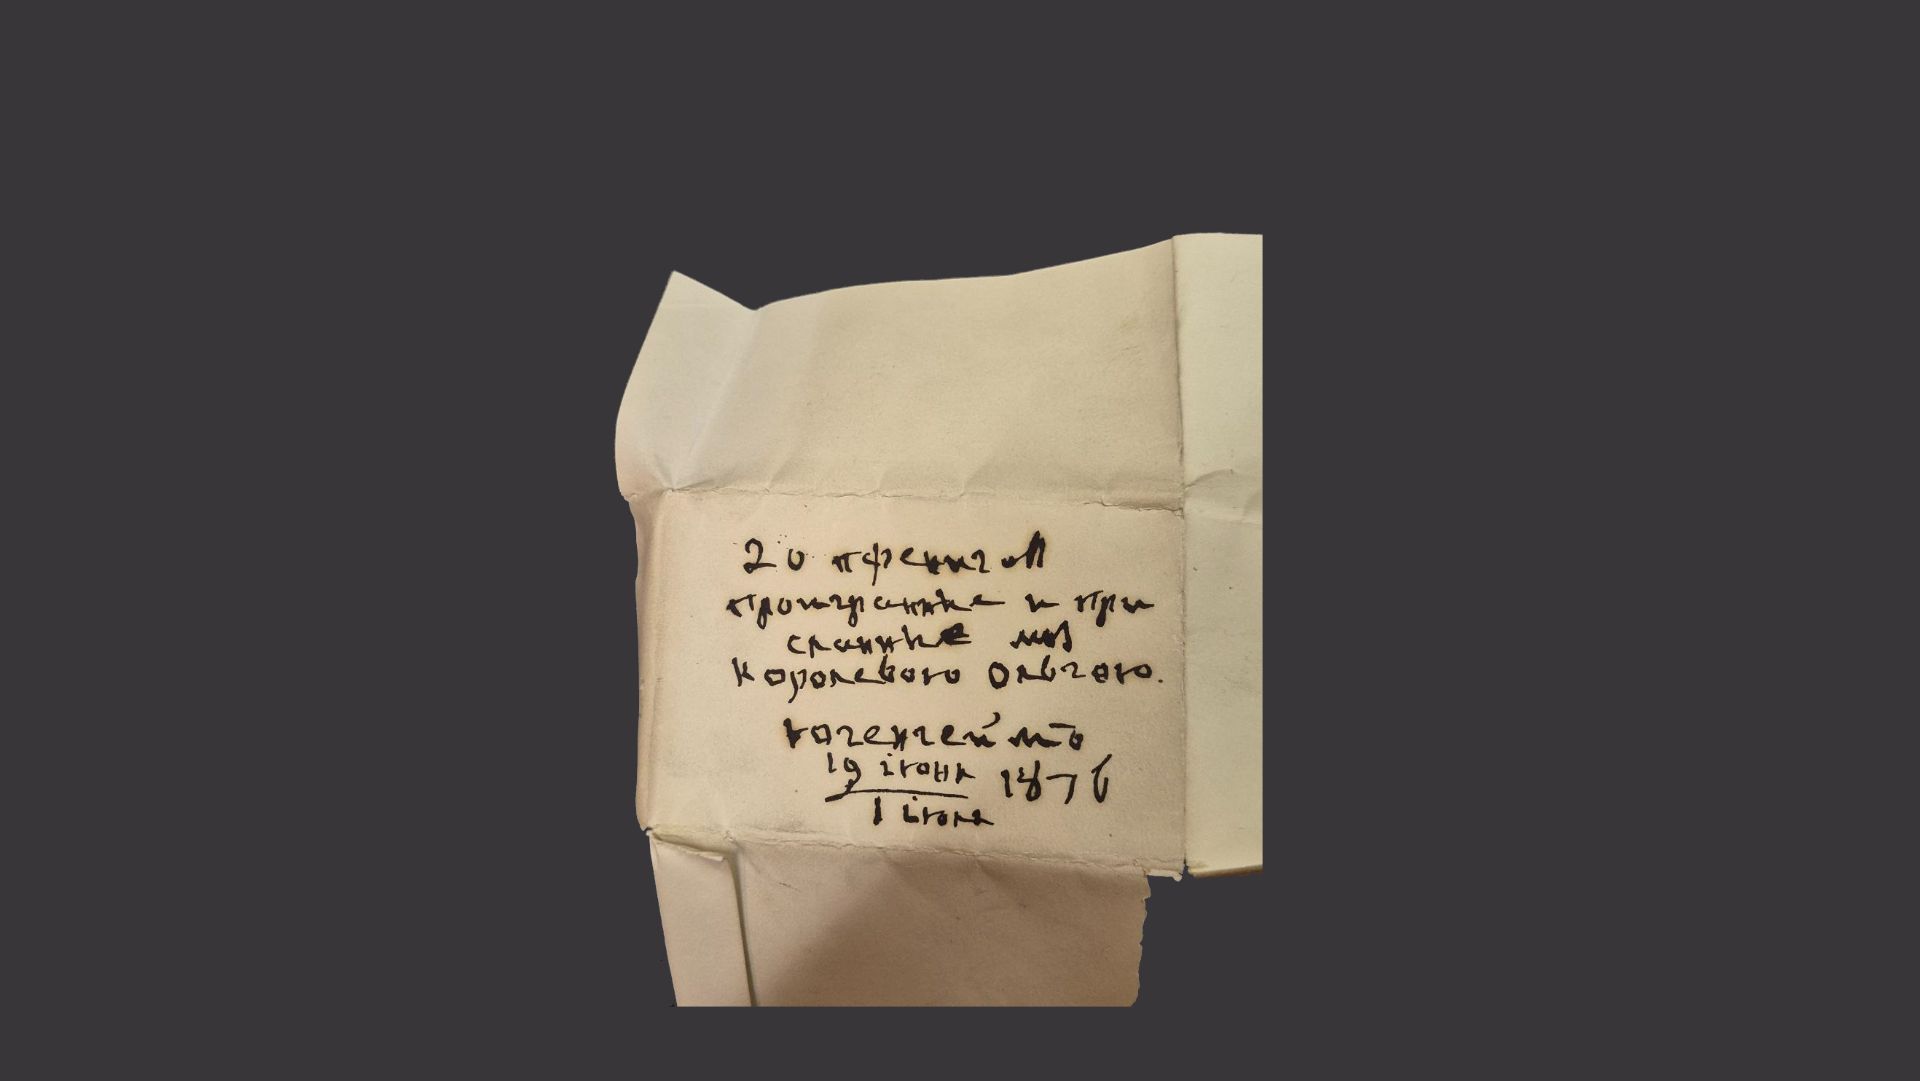 20 пфенигов
проигранные и при
сланные мнѣ
Королевою Ольгою.
Югенгеймъ
19 iюня 1876
1 iюля